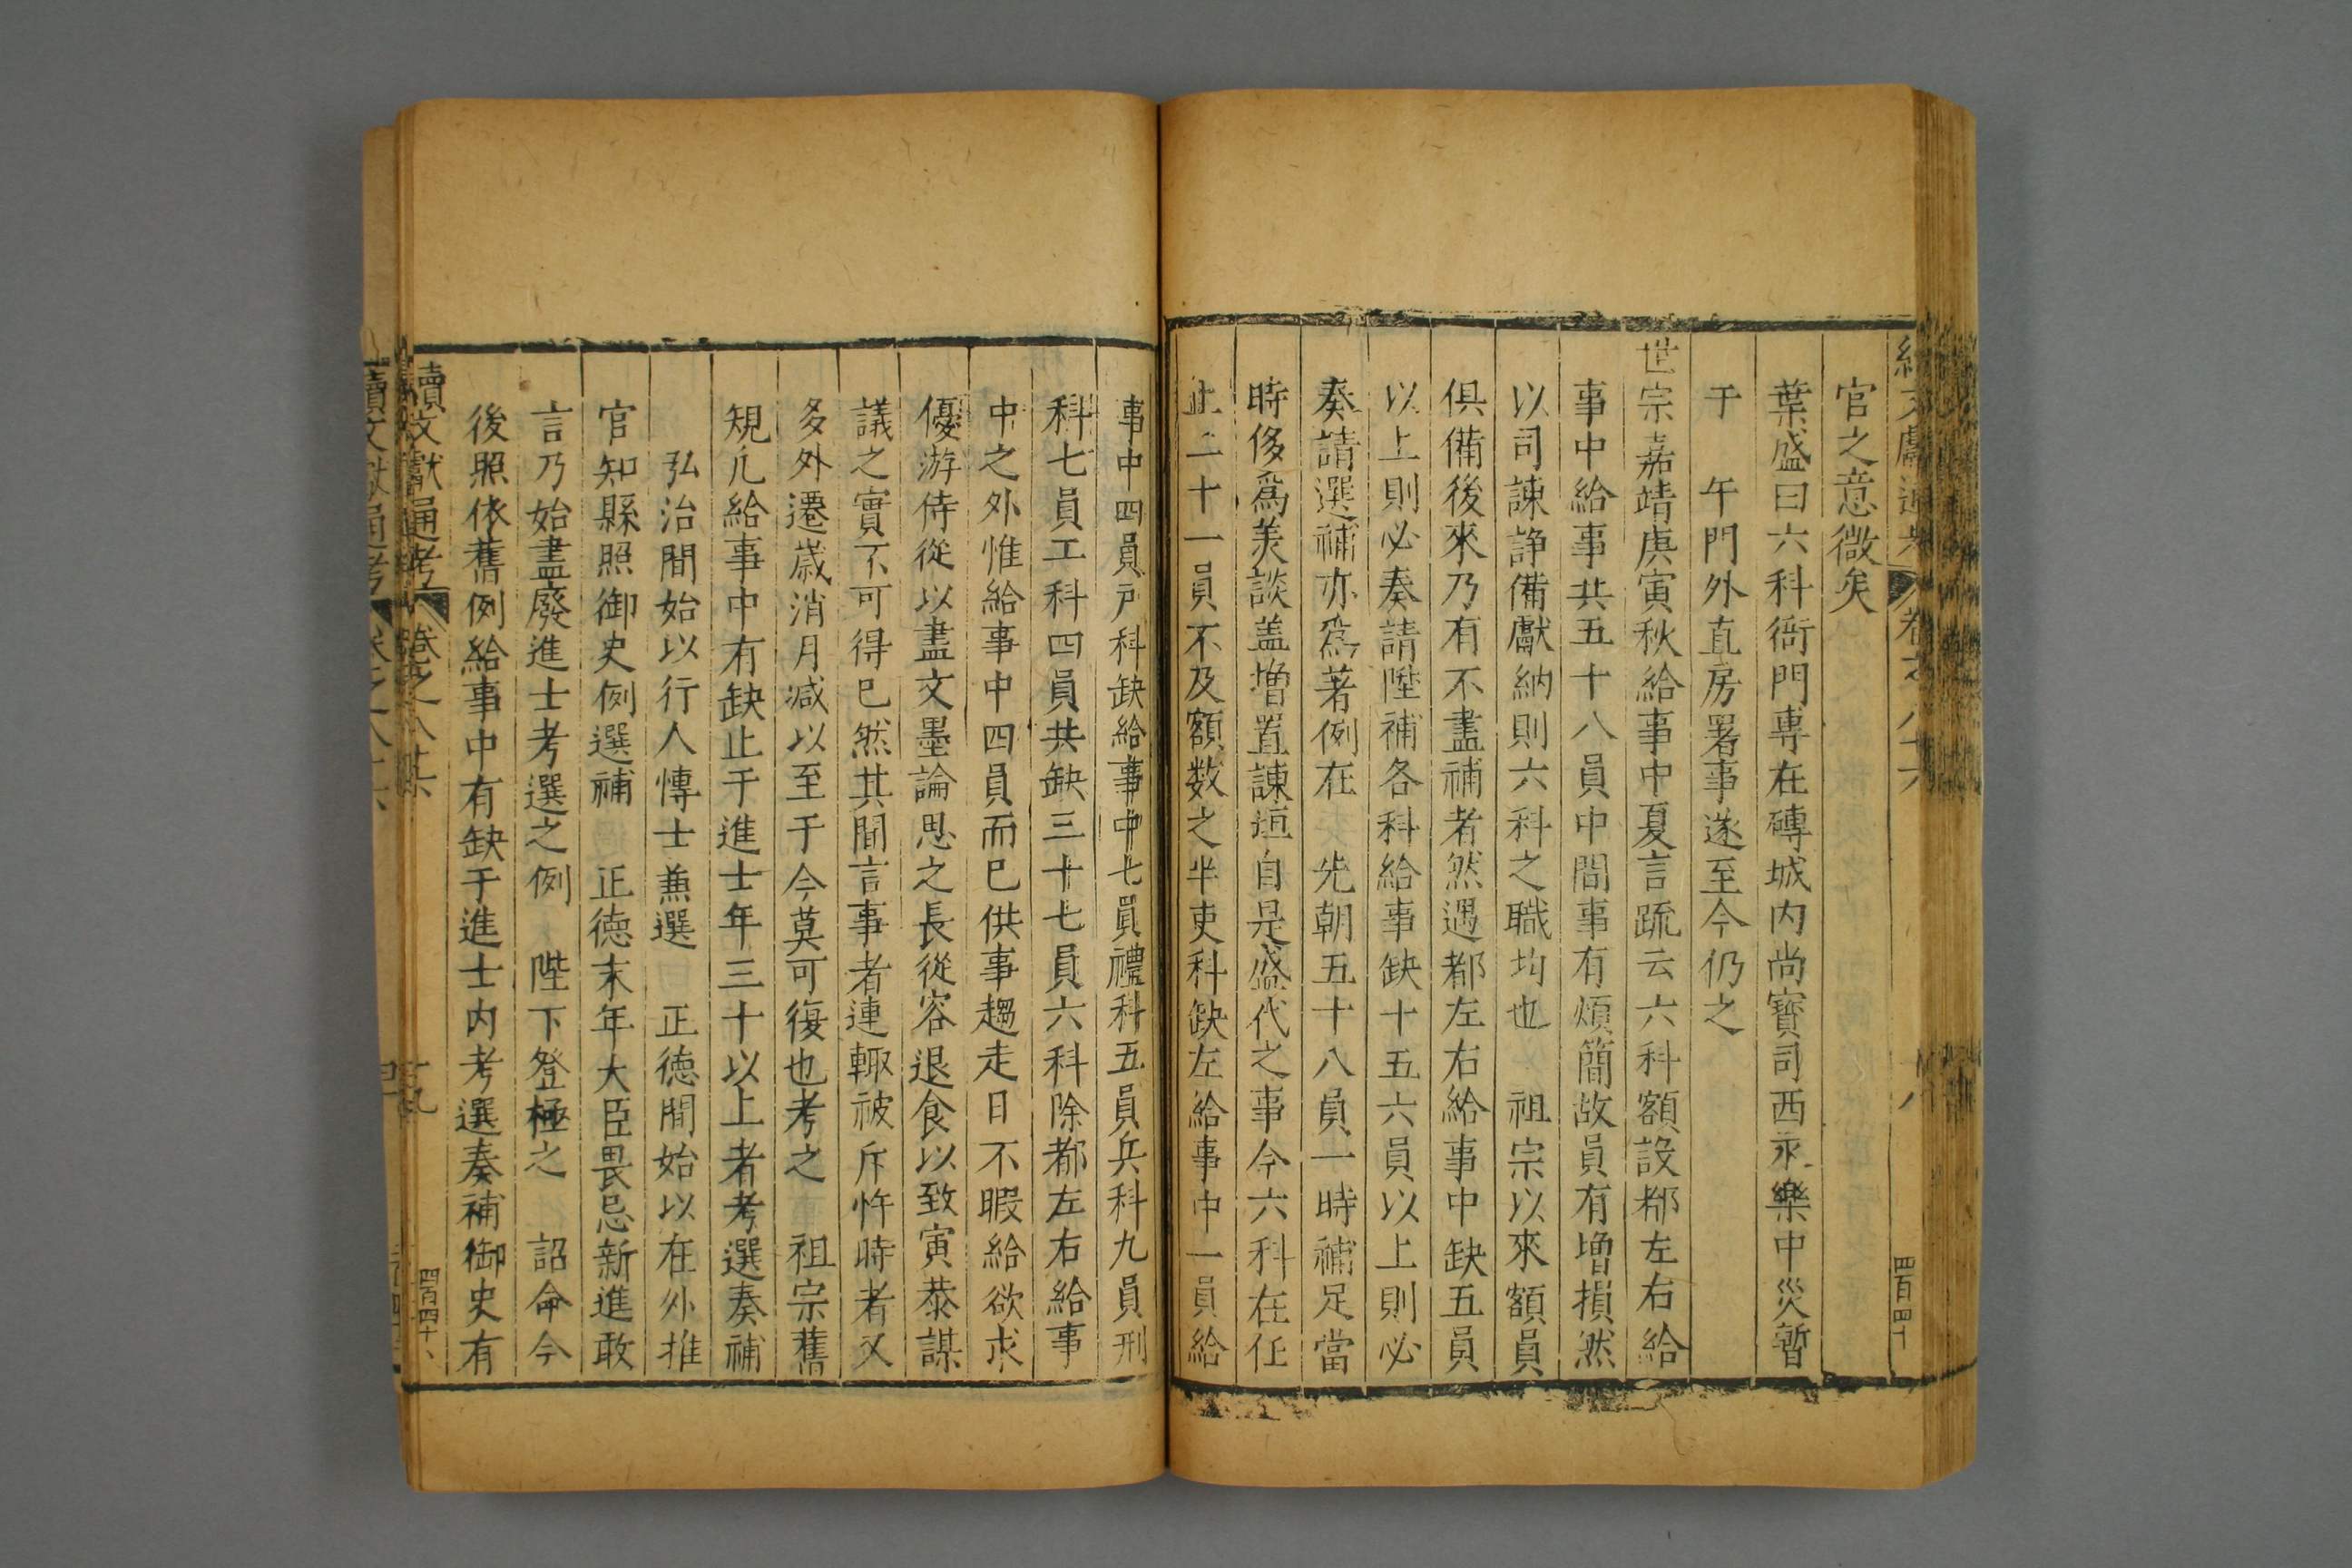 官之意微矣
葉盛曰六科衙門專在磚城内尚寳司西永樂中災暫
于　午門外直房署事遂至今仍之
世宗嘉靖庚寅秋給事中夏言疏云六科額設都左右給
事中給事共五十八員中間事有煩簡故員有增損然
以司諫諍備獻納則六科之職均也　祖宗以來額員
俱備後來乃有不盡補者然遇都左右給事中缺五員
以上則必奏請陞補各科給事缺十五六員以上則必
奏請選補亦爲著例在　先朝五十八員一時補足當
時侈爲美談盖增置諫垣自是盛代之事今六科在任
止二十一員不及額数之半吏科缺左給事中一員給
事中四員戸科缺給事中七員禮科五員兵科九員刑
科七員工科四員共缺三十七員六科除都左右給事
中之外惟給事中四員而已供事趨走日不暇給欲求
優游侍從以盡文墨論思之長從容退食以致寅恭謀
議之實不可得已然其間言事者連輙被斥忤時者又
多外遷歲消月减以至于今莫可復也考之　祖宗舊
規凢給事中有缺止于進士年三十以上者考選奏補
弘治間始以行人慱士兼選　正德間始以在外推
官知縣照御史例選補　正德末年大臣畏忌新進敢
言乃始盡廢進士考選之例　陛下登極之　詔命今
後照依舊例給事中有缺于進士内考選奏補御史有
續文獻通考
卷之八十六
十九
四百四十